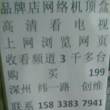 品牌店网络机顶盒
高清看电视
上网浏览网页
收看频道3千多台
购买 199
深州 纬一路 创维
15833837941